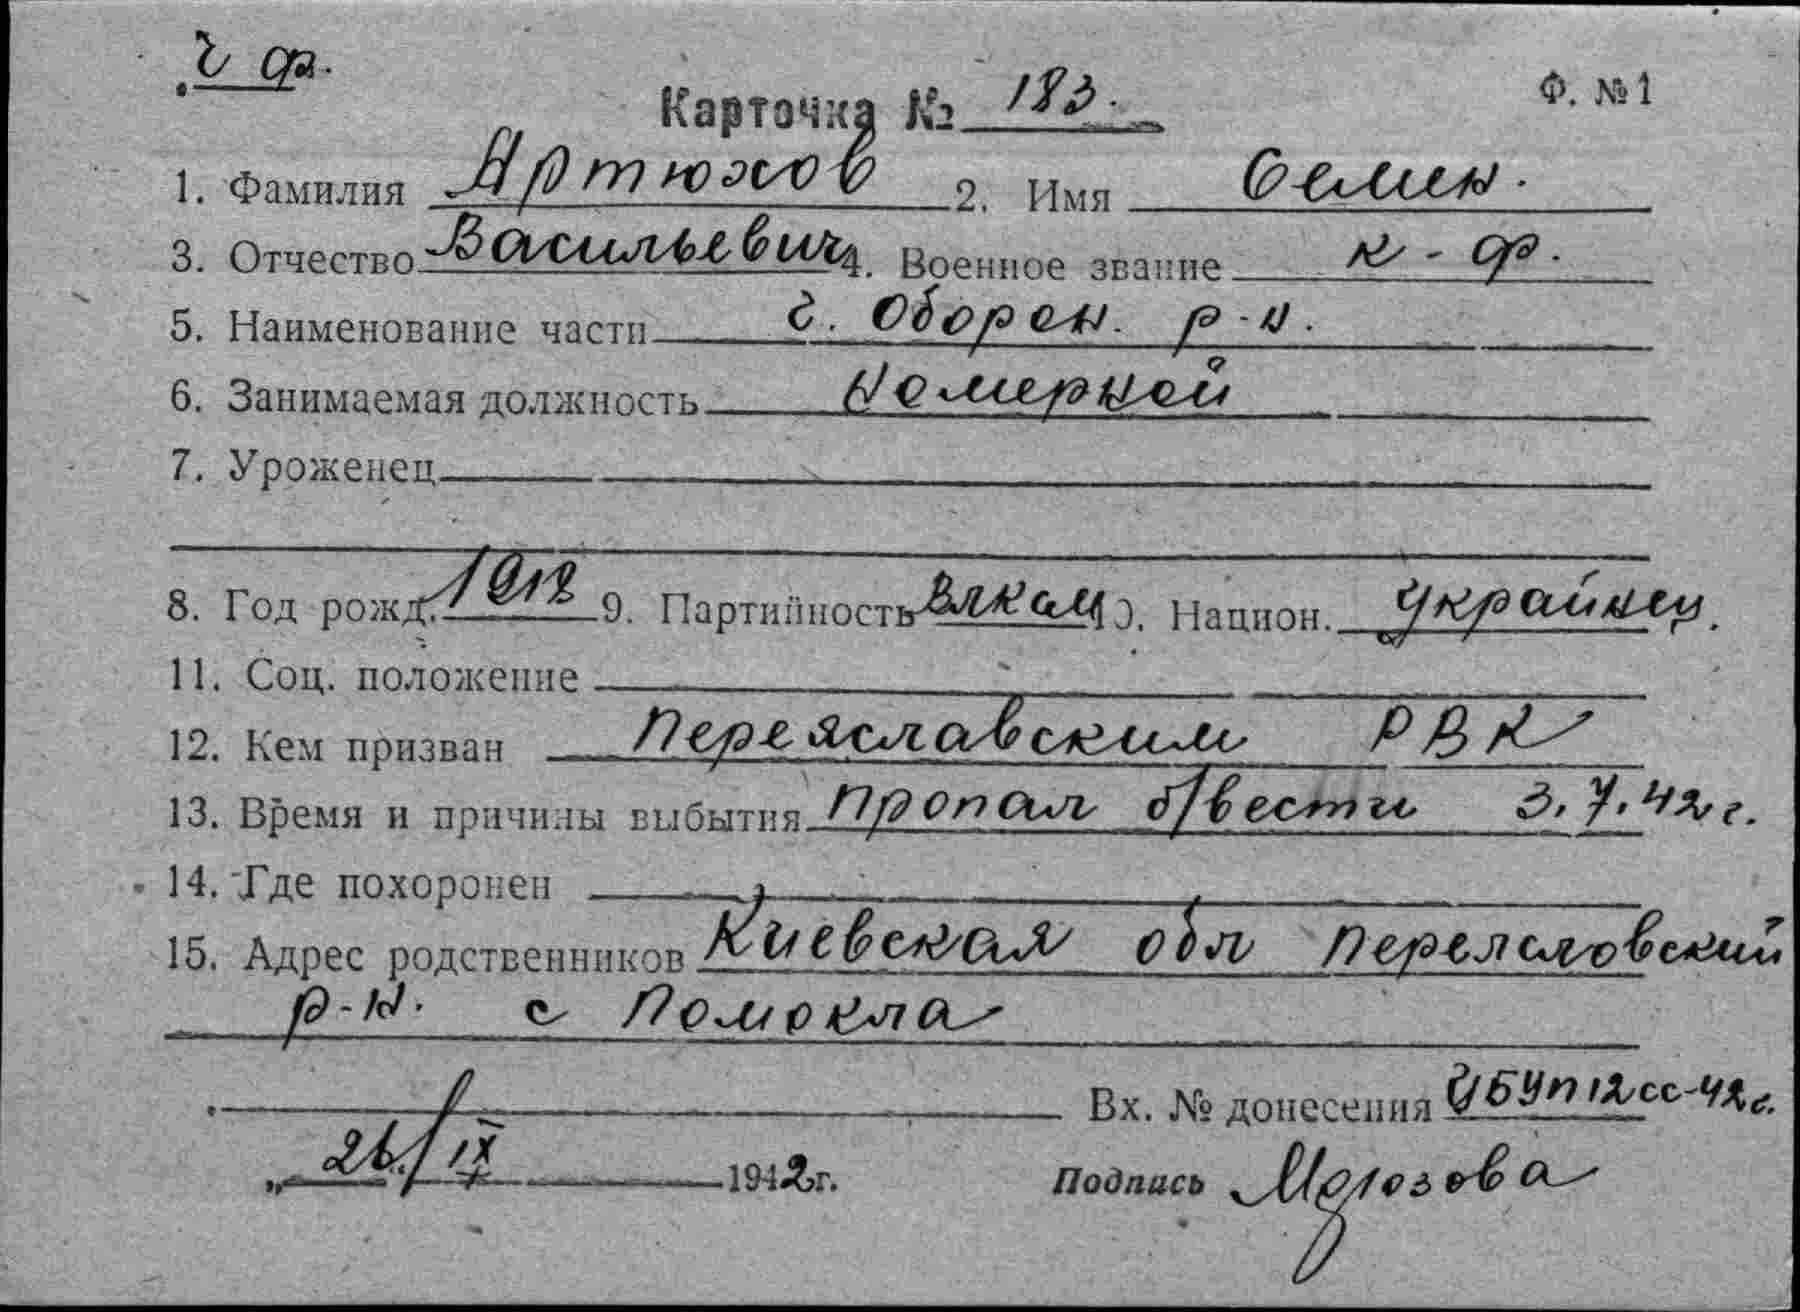 ч ф.
Карточка № 183. Ф. №1
1. Фамилия Артюхов 2. Имя Семен.
3. Отчество Васильевич 4. Военное звание к-ф.
5. Наименование части г. Оборон. р-н.
6. Занимаемая должность номерной
7. Уроженец
8. Год рожд. 1918 9. Партийность влксм 10. Национ. украинец.
11. Соц. положение
12. Кем призван Переяславским РВК
13. Время и причины выбытия пропал б/вести 3.7.42 г.
14. Где похоронен
15. Адрес родственников Киевская обл Переясловский
р-н. с Помокла
Вх. № донесения ЦБУП 12сс-42г.
„ 26/IX 1942г. Подпись Морозова